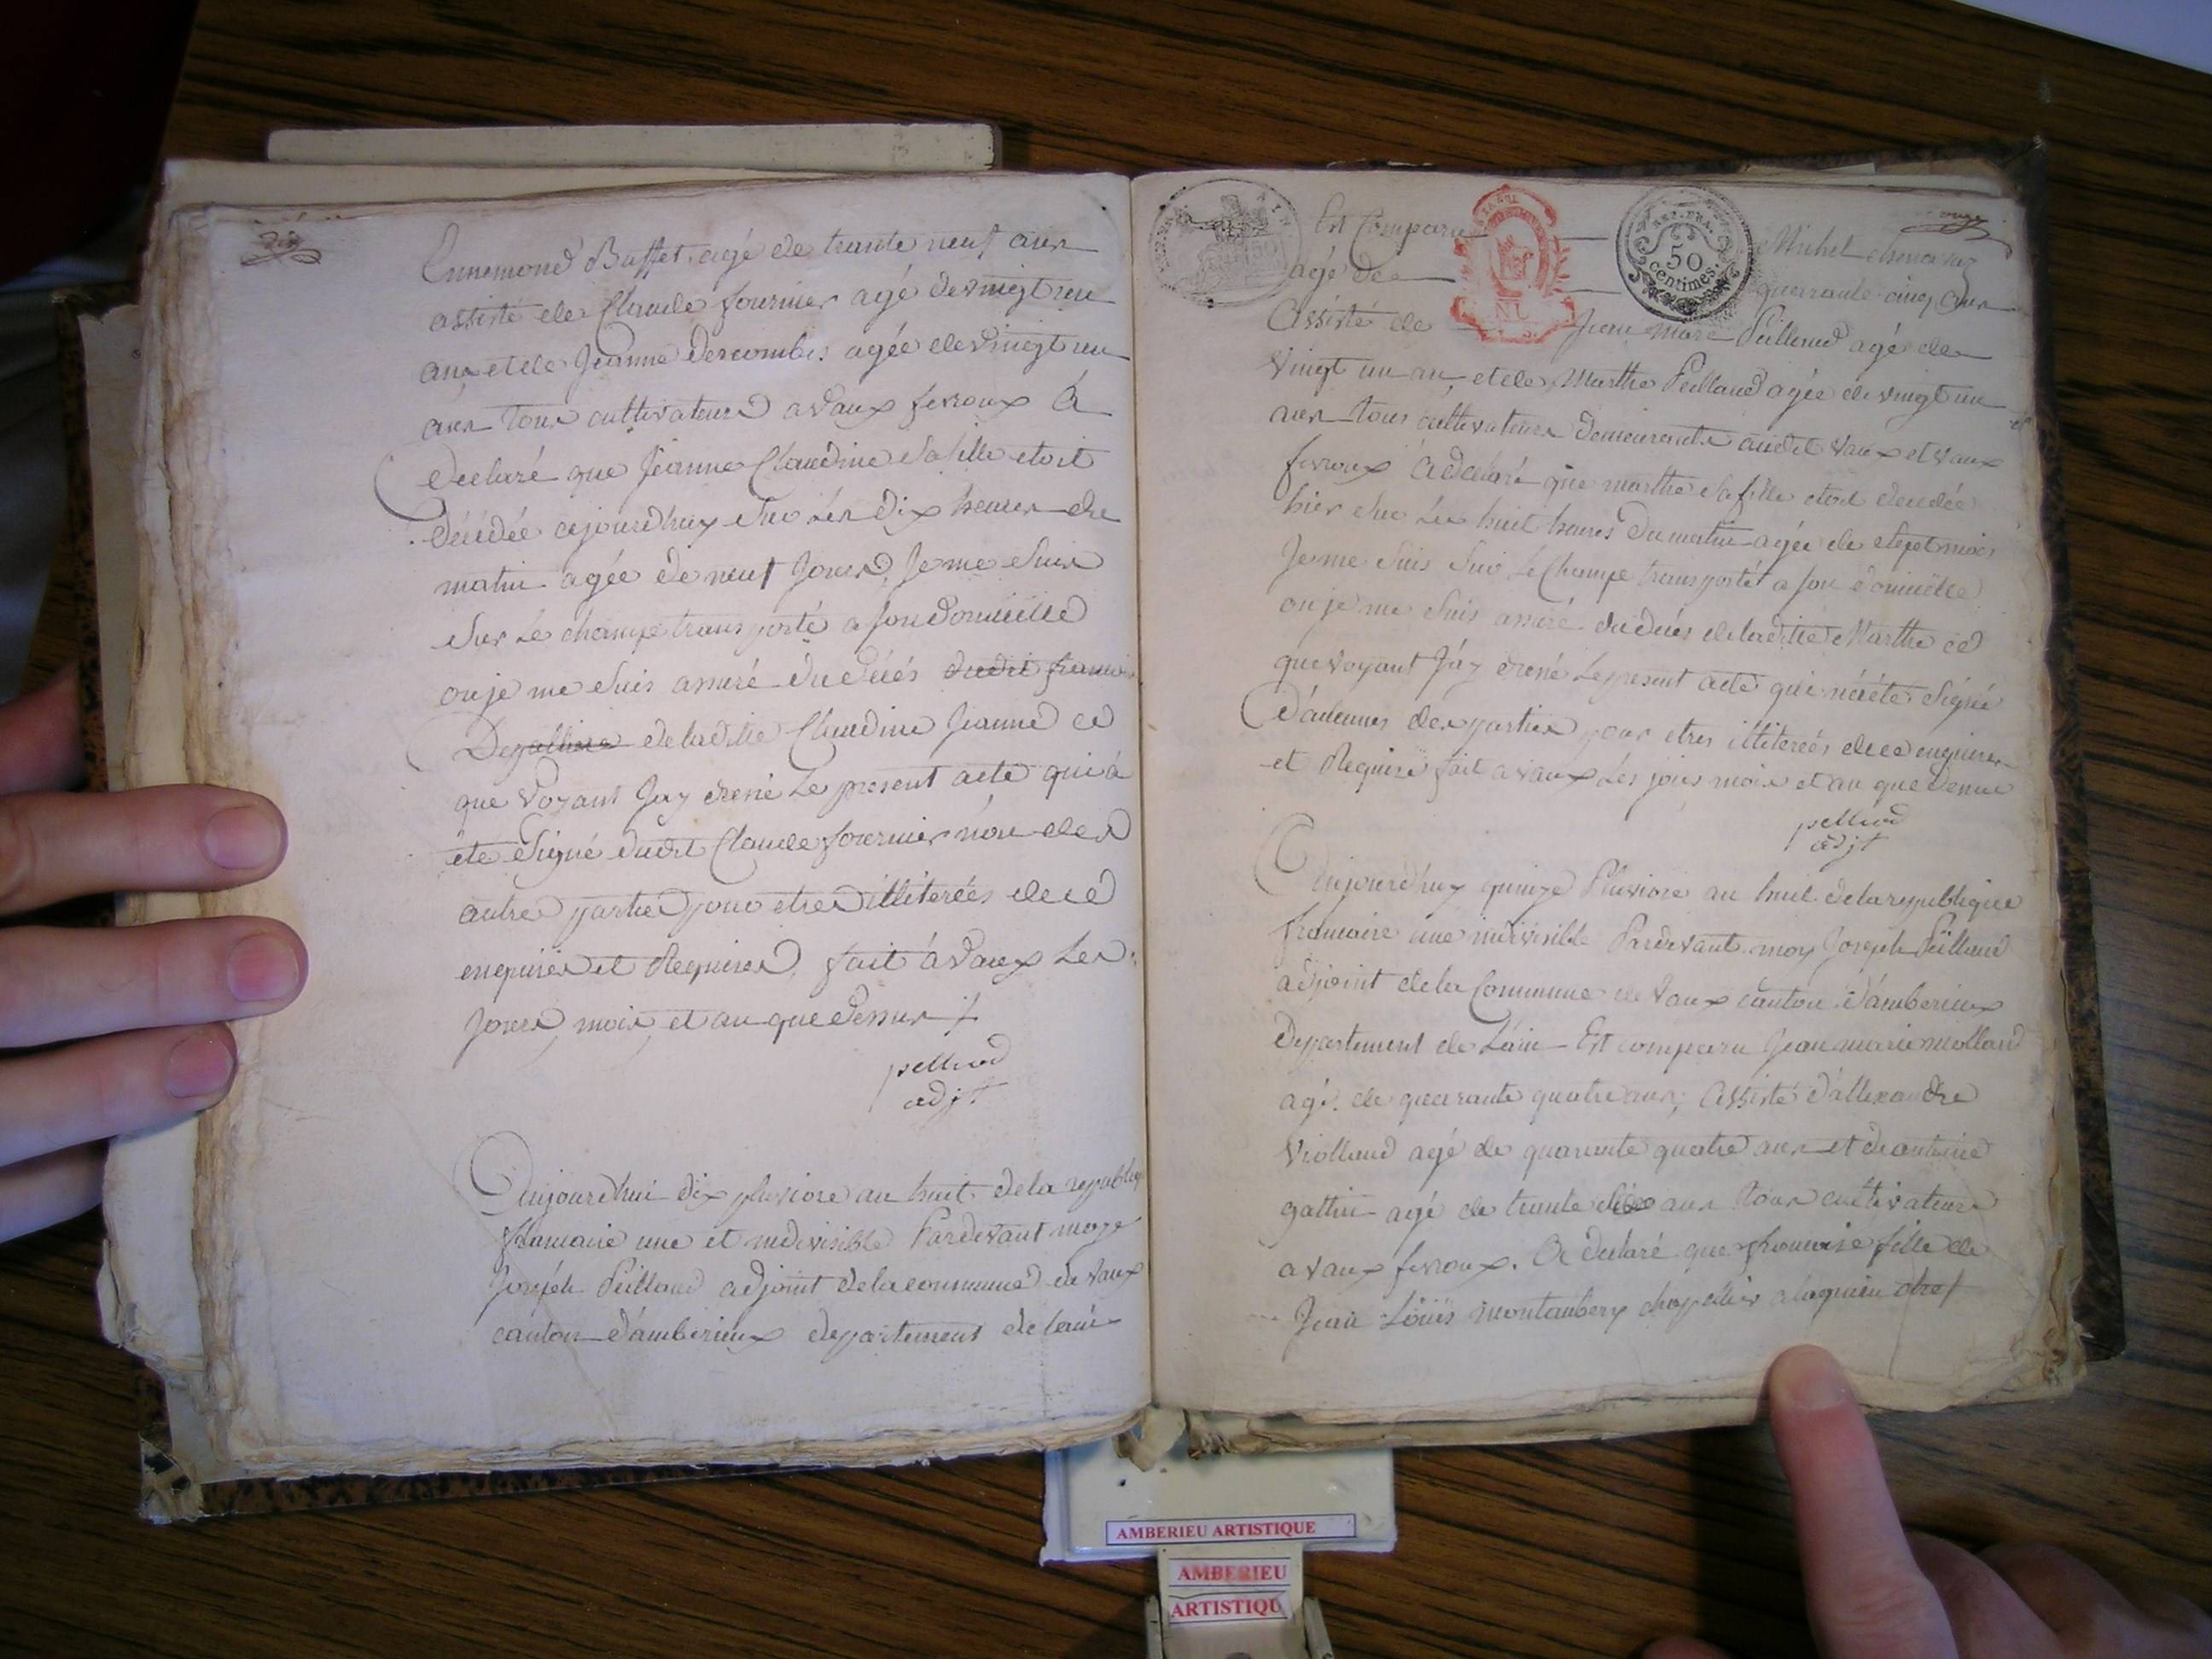 dix
Ennemond Buffet agé de trante neuf ans
assisté de Claude fournier agé de vingt un
ans et de Jeanne Descombes agée de vingt un
ans Tous cultivateurs a Vaux fevroux A
declaré que Jeanne Claudine sa fille etoit
décédée cejourdhuy sur Les dix heures du
matin agée de neuf Jours, Je me suis
sur Le champ transporté a son Domicille
ou je me suis assuré du décés dudit francois
Degallines de laditte Claudine Jeanne ce
que Voyant Jay dressé Le present acte qui à
été signé dudit Claude fournier non des
autres parties pour etres illiterées de ce
enquises et Requises, fait à Vaux Les
Jours mois et an que Dessus
pelliod
adjt
Aujourdhui dix pluviose an huit de la republiq
francaise une et indivisible Pardevant moy
Joseph Peilloud adjoint de la commune de Vaux
canton d'amberieux departement de l'ain
onze
REP. FRA. AIN
50
REP. FRA.
50
centimes.
Est Comparu Michel
agé de quarante cinq ans
Assisté de Jean Marie Peilloud agé de
vingt un an, et de Marthe Peilloud agée de vingt un
ans tous cultivateurs demeurants audit Vaux et Vaux
fevroux A declaré que marthe sa fille etoit decedée
hier sur Les huit heures du matin agée de sept mois
Je me suis sur Le Champ transporté a son domicille
ou je me suis assuré du décés de laditte Marthe ce
que Voyant Jay dressé Le present acte qui n'a été signé
d'aucunes des parties pour etres illiterées de ce enquises
et Requise fait a vaux Les jours mois et an que Dessus
pelliod
adjt
Aujourdhuy quinze Pluviose an huit de la republique
francaise une indivisible Pardevant moy Joseph Peilloud
adjoint de la Commune de Vaux canton d'amberieux
Departement de L'ain Est comparu Jean marie miolland
agé de quarante quatre ans, Assisté d'allexandre
Violland agé de quarante quatre ans et de antoine
gattin agé de trante ans Tous cultivateurs
a vaux fevroux. A declaré que francoise fille de
Jean Loüis montanbery chapelier a lagnieu
AMBERIEU ARTISTIQUE
AMBERIEU
ARTISTIQU